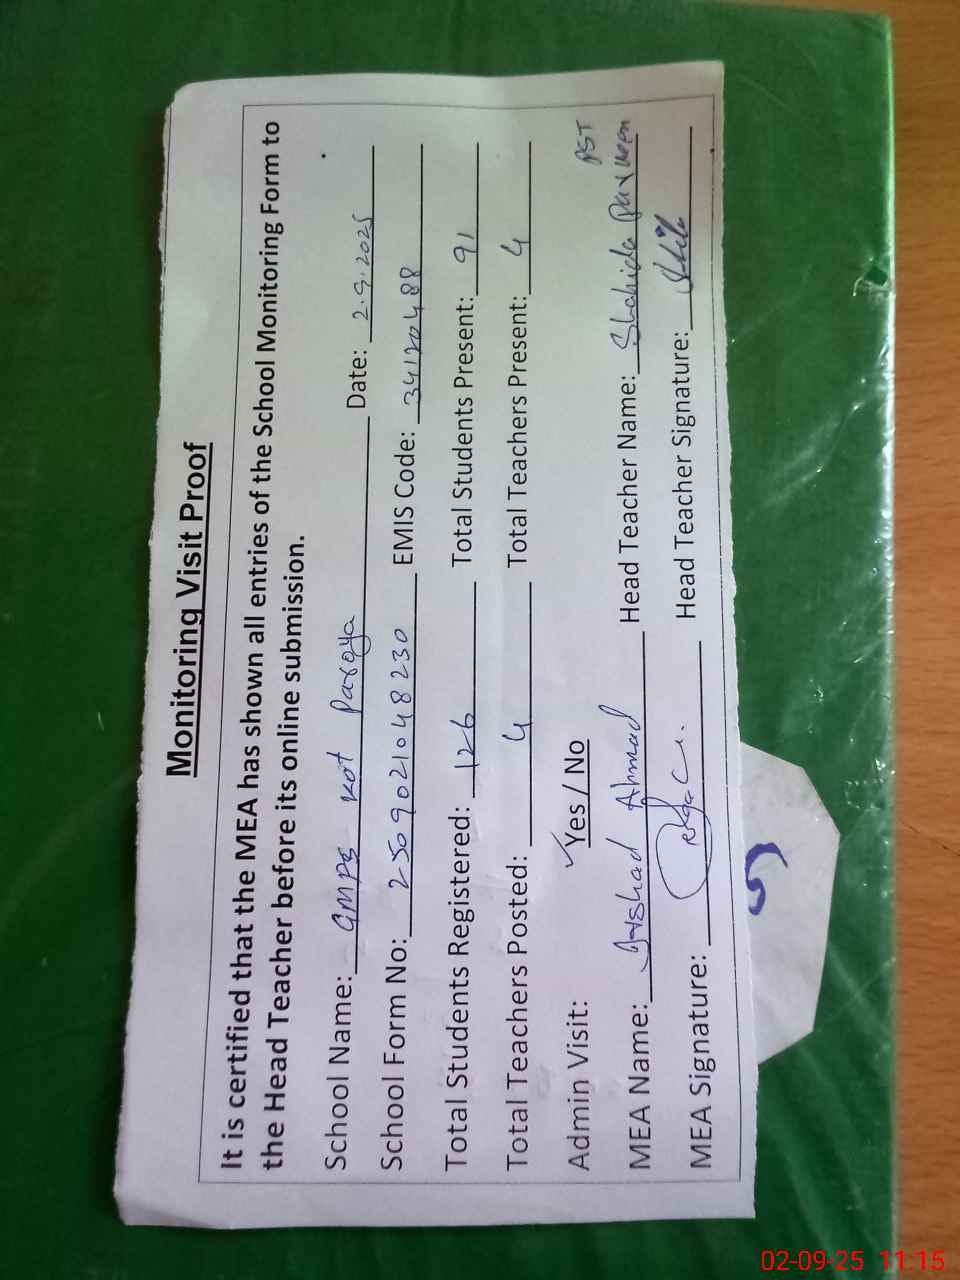 Monitoring Visit Proof
It is certified that the MEA has shown all entries of the School Monitoring Form to
the Head Teacher before its online submission.
School Name: GMPS Kot Paroya Date: 2.9.2025
School Form No: 2509021048230 EMIS Code: 34120488
Total Students Registered: 126 Total Students Present: 91
Total Teachers Posted: 4 Total Teachers Present: 4
Admin Visit: Yes / No
PST
MEA Name: Arshad Ahmad Head Teacher Name: Shahida Parveen
MEA Signature: Head Teacher Signature:
02-09-25 11:15